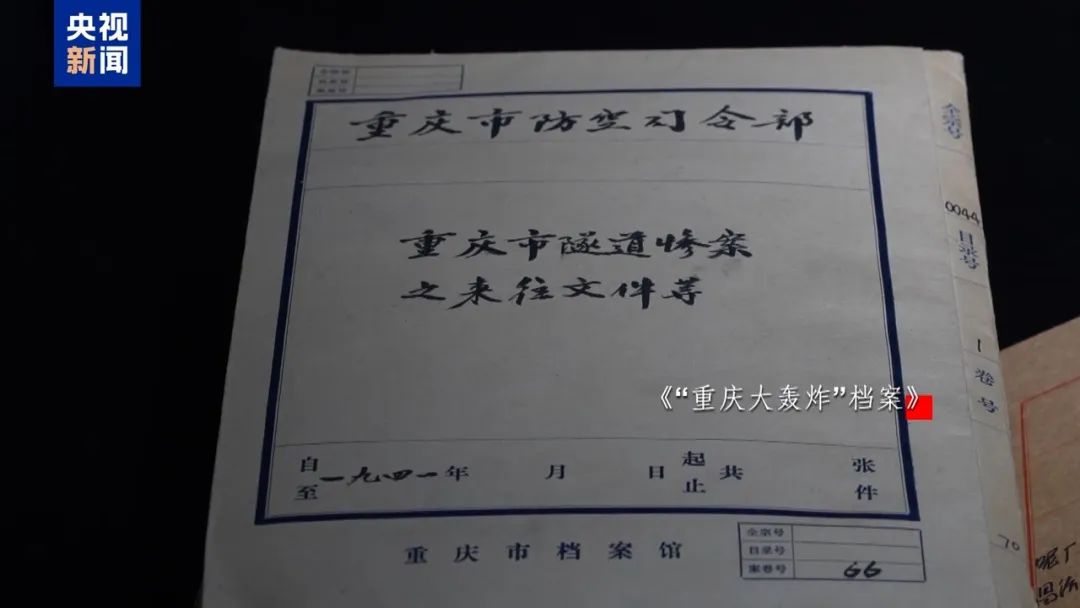 央视
新闻
全宗号
目录号
案卷号
重庆市防空司令部
重庆市隧道惨案
之来往文件等
《“重庆大轰炸”档案》
自
至
一九四一年 月 日
起
止
共
张
件
重庆市档案馆
全宗号
目录号
案卷号 66
全宗号
0044
目录号
1
卷号
70
昵厂